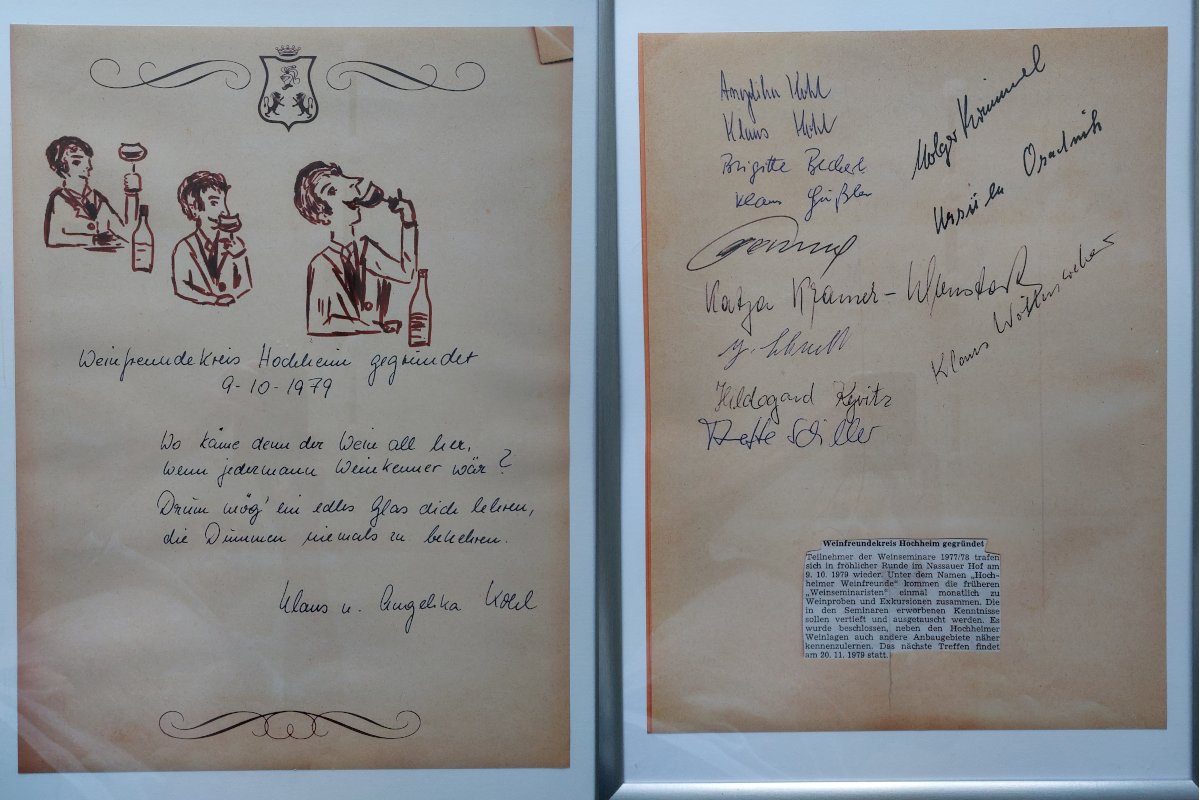 Weinfreundekreis Hochheim gegründet
9-10-1979
Wo käme denn der Wein all her,
wenn jedermann Weinkenner wär?
Drum mög' ein edles Glas dich lehren,
die Dummen niemals zu bekehren.
Klaus u. Angelika Kohl
Angelika Kohl
Klaus Kohl
Brigitte
Klaus
Katja Kramer-
Hildegard Kyritz
Schiller
Holger Krimmel
Ursula Osadnik
Klaus
Weinfreundekreis Hochheim gegründet
Teilnehmer der Weinseminare 1977/78 trafen
sich in fröhlicher Runde im Nassauer Hof am
9. 10. 1979 wieder. Unter dem Namen „Hoch-
heimer Weinfreunde" kommen die früheren
„Weinseminaristen" einmal monatlich zu
Weinproben und Exkursionen zusammen. Die
in den Seminaren erworbenen Kenntnisse
sollen vertieft und ausgetauscht werden. Es
wurde beschlossen, neben den Hochheimer
Weinlagen auch andere Anbaugebiete näher
kennenzulernen. Das nächste Treffen findet
am 20. 11. 1979 statt.